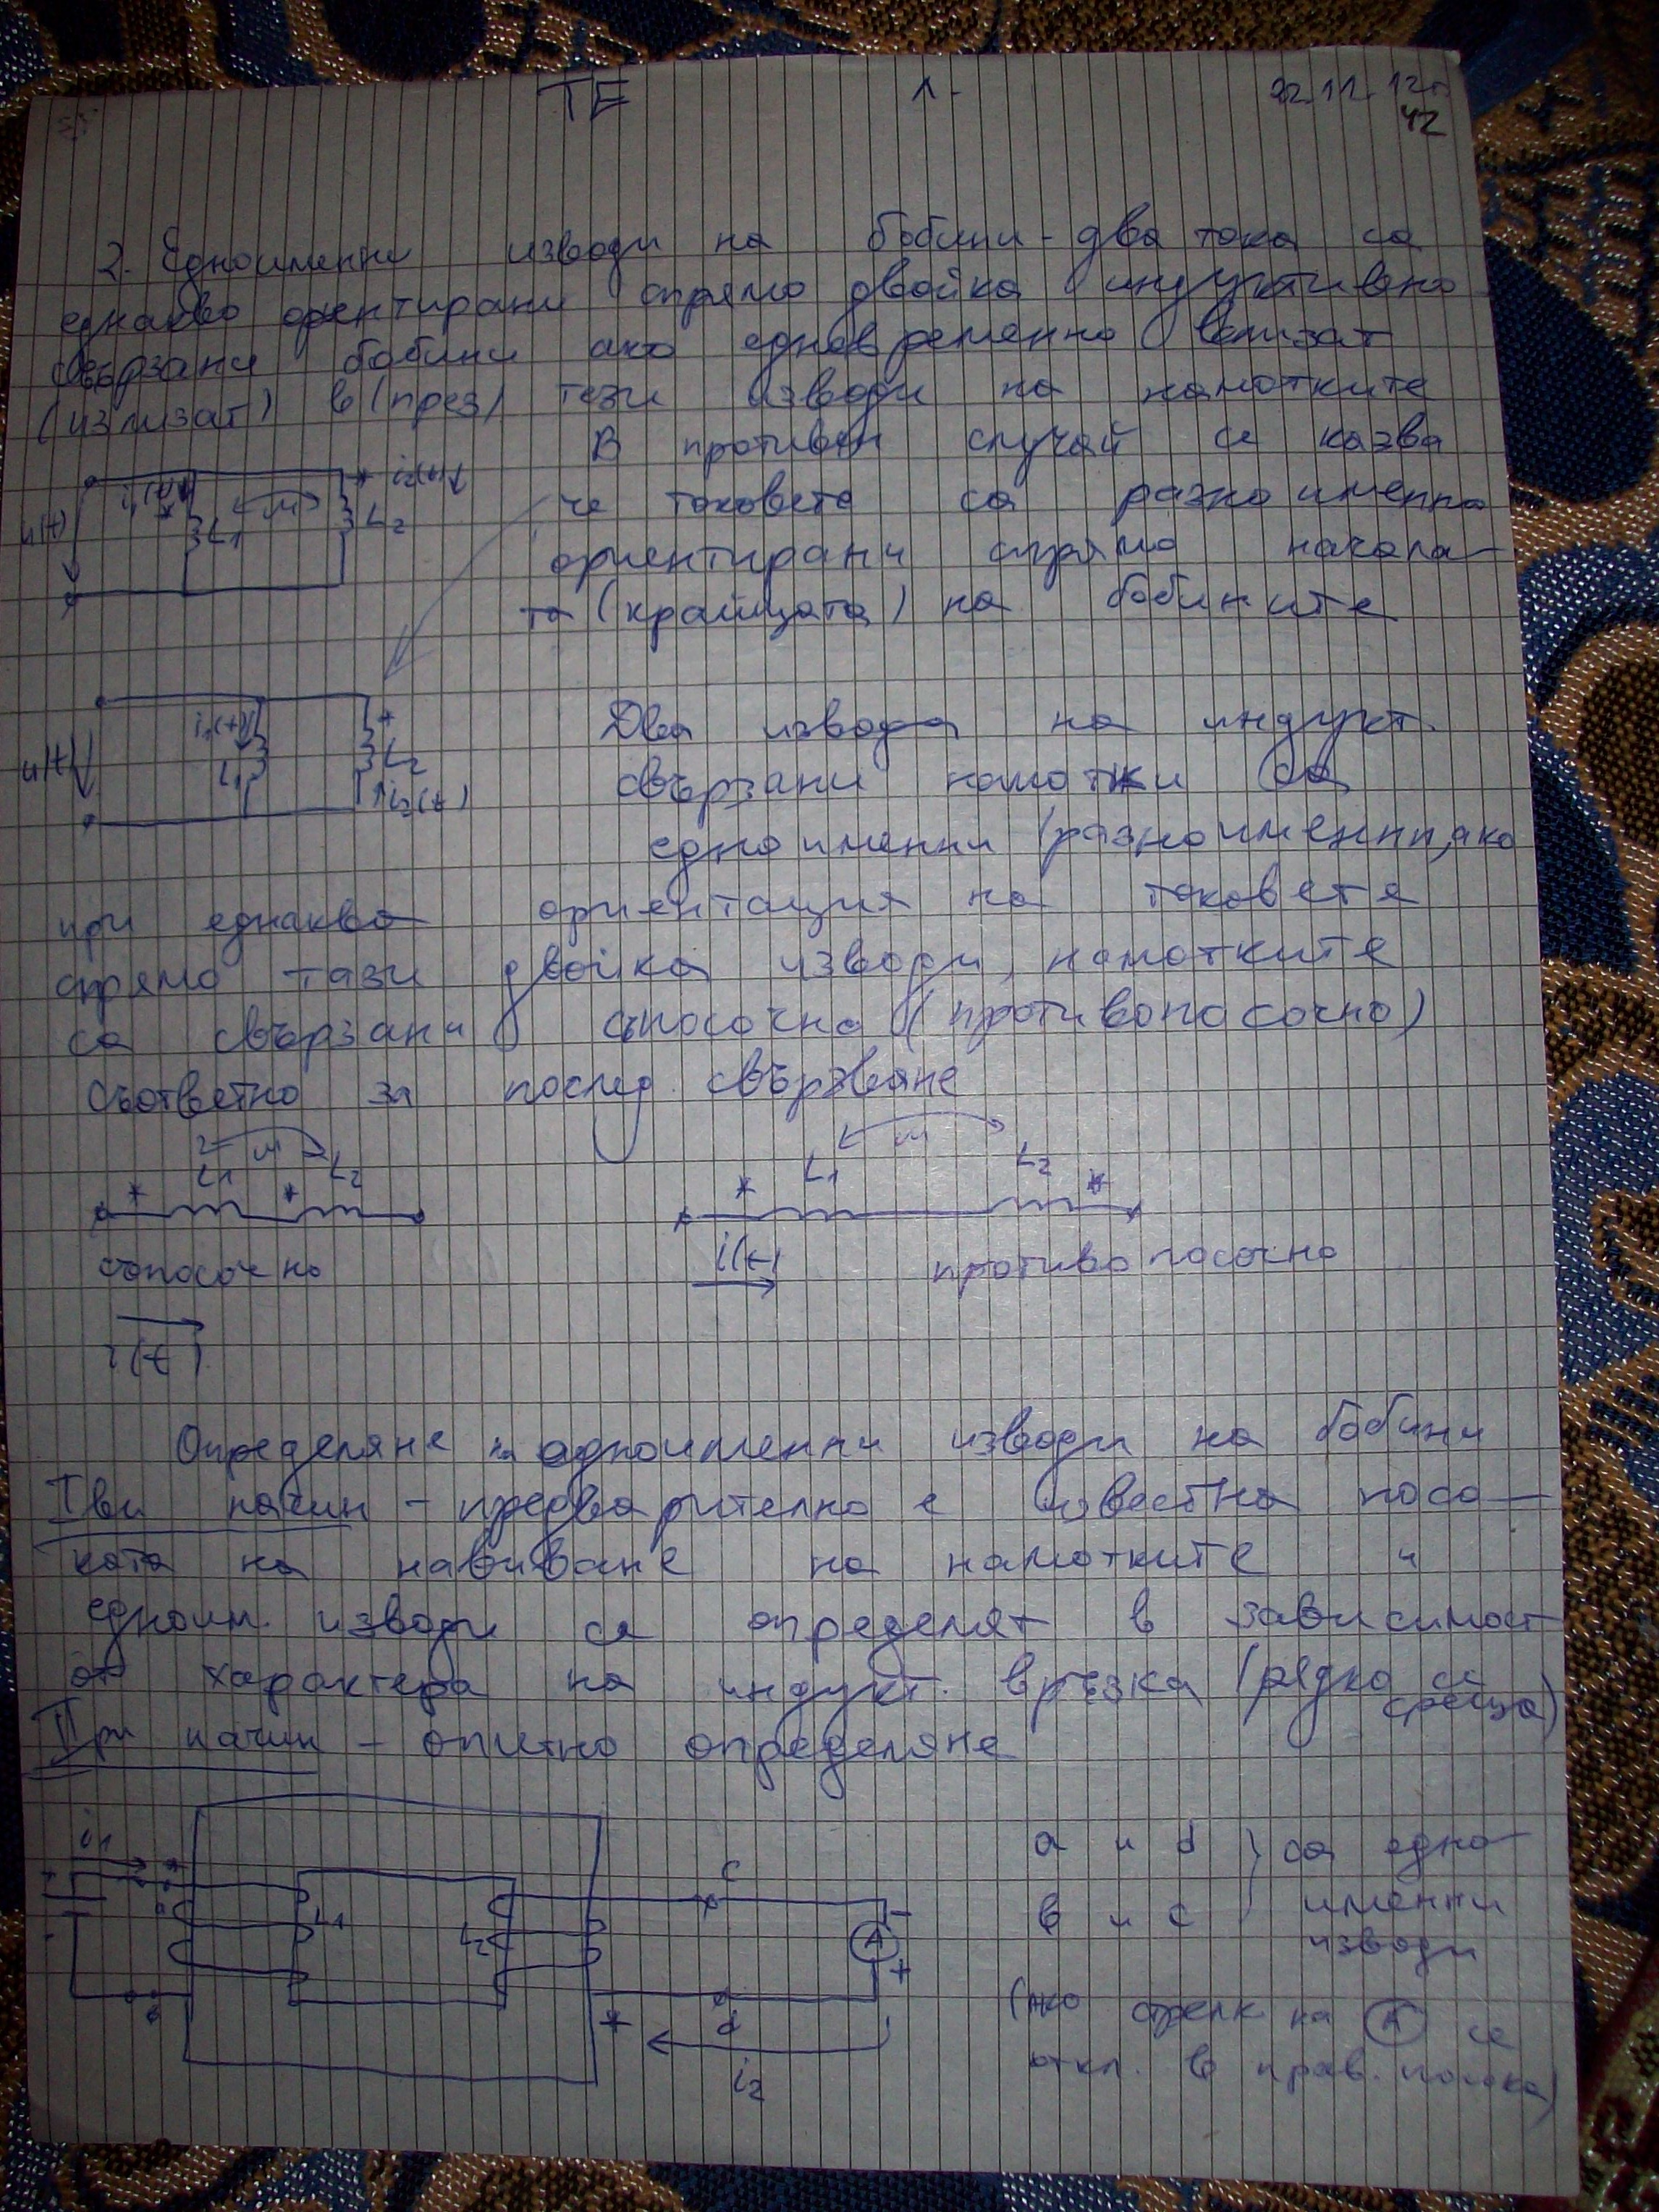 ТЕ 1- 22.11.12г.
42
2. Едноименни изводи на бобини - два тока са
еднакво орентирани спрямо двойка индуктивно
свързани бобини ако едновременно влизат
(излизат) в (през) тези изводи на намотките
В противен случай се казва
че токовете са разноименно
ориентирани спрямо начала-
та (краищата) на бобините
u(t) i₁(t) L₁ M L₂ * i₂(t)
u(t) i₁(t) L₁ * L₂ i₂(t)
Два извода на индукт.
свързани намотки са
едноименни (разноименни, ако
при еднаква ориентация на токовете
спрямо тази двойка изводи, намотките
са свързани съпосочно (противопосочно)
Съответно за послед. свързване
M M
* L₁ * L₂ * L₁ L₂ *
съпосочно i(t) противопосочно
i(t)
Определяне на едноименни изводи на бобини
Iви начин - предварително е известна посо-
ката на навиване на намотките и
едноим. изводи се определят в зависимост
от характера на индукт. връзка (рядко се
среща)
IIри начин - опитно определяне
i₁ * + a - L₁ L₂ c - A + d * i₂ в
a и d } са едно-
в и c именни
изводи
(ако стрелк на A се
откл. в прав. посока)